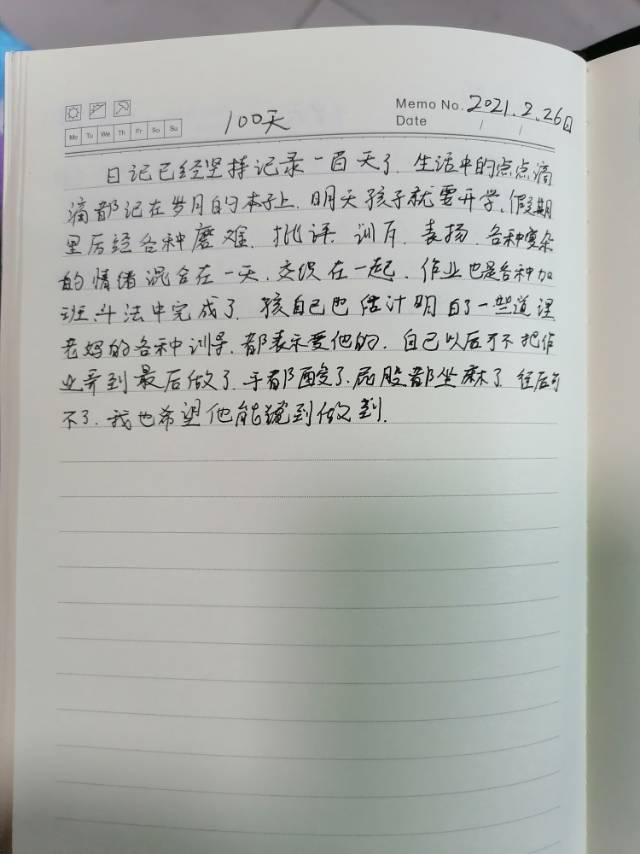 Memo No. 2021.2.26日
Date / /
Mo Tu We Th Fr Sa Su
100天
日记已经坚持记录一百天了.生活中的点点滴
滴都记在岁月的本子上.明天孩子就要开学,假期
里历经各种磨难.批评 训斥.表扬.各种复杂
的情绪混合在一天.交织在一起.作业也是各种加
班.斗法中完成了.孩自己也估计明白了一些道理
老妈的各种训导.都表示爱他的.自己以后可不把作
业弄到最后做了.手都酸了.屁股都坐麻了.往后可
不了.我也希望他能够到做到.